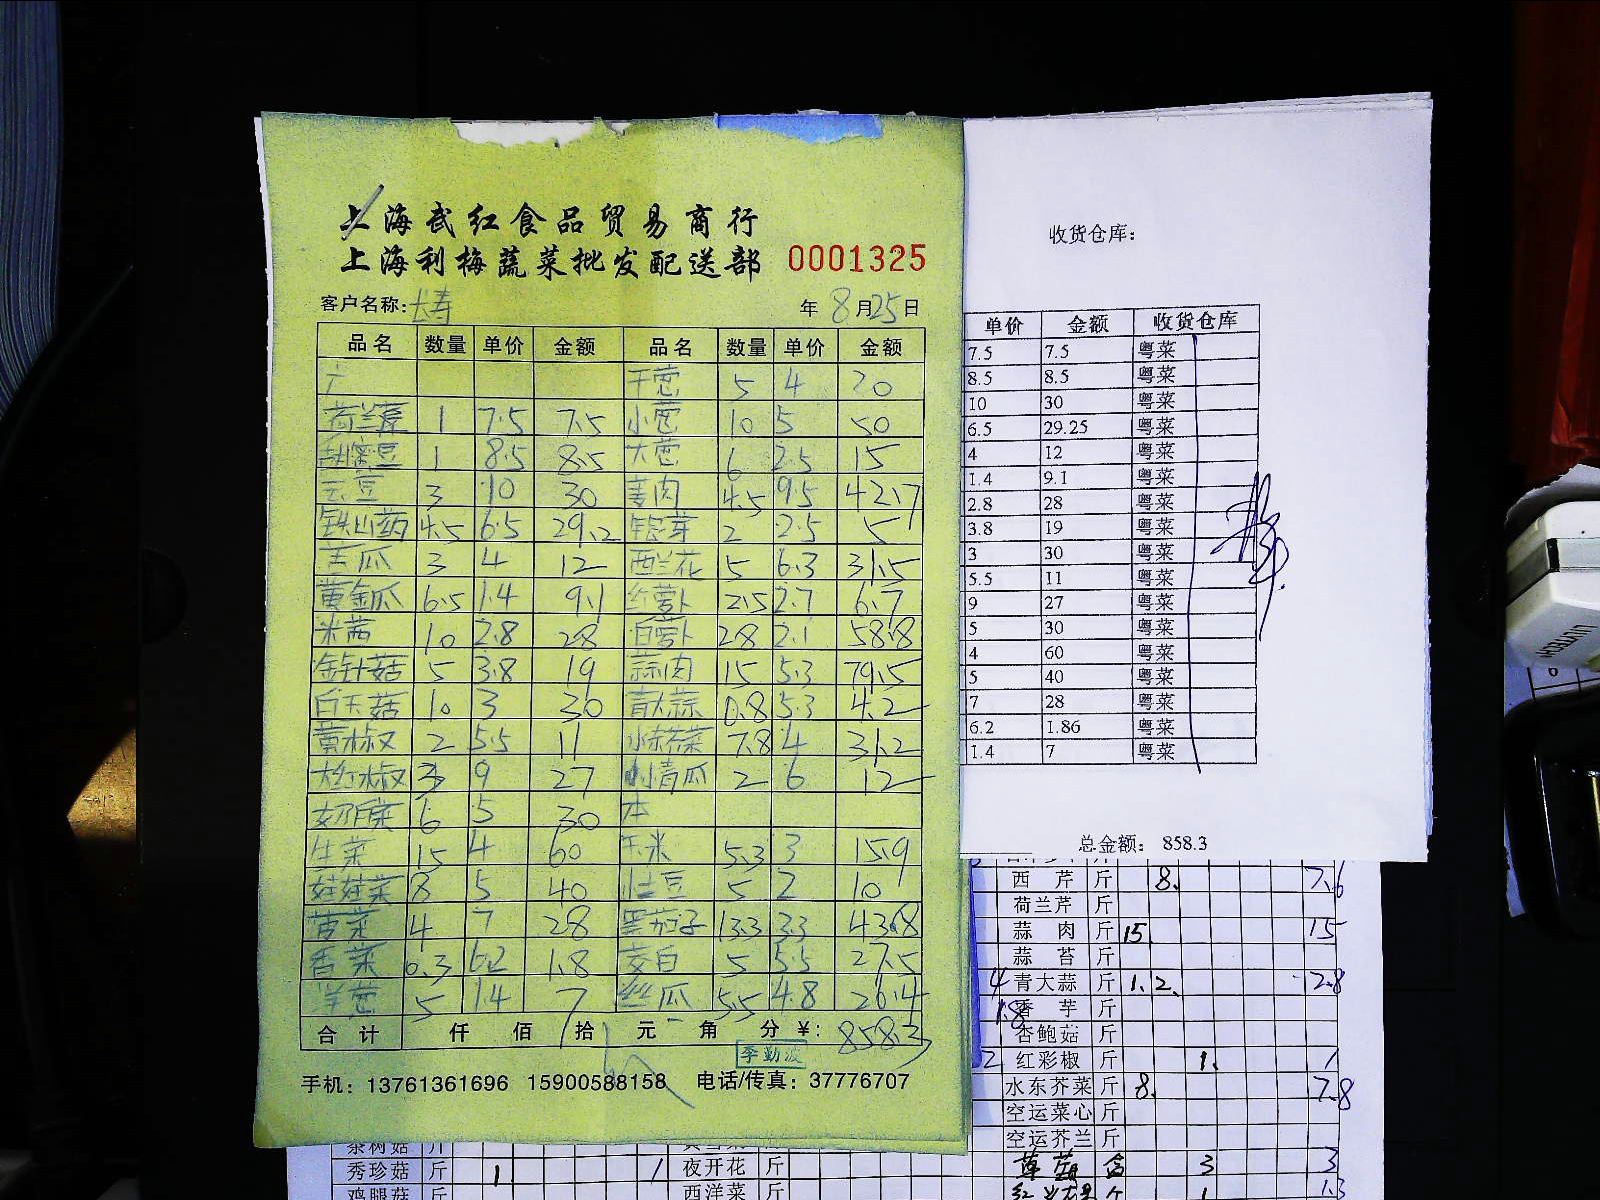 上海武红食品贸易商行
上海利梅蔬菜批发配送部 0001325
客户名称:长寿 年8月25日
品名 数量 单价 金额 品名 数量 单价 金额
广 干葱 5 4 20
荷兰豆 1 7.5 7.5 小葱 10 5 50
甜蜜豆 1 8.5 8.5 大葱 6 2.5 15
云豆 3 10 30 姜肉 4.5 9.5 42.7
铁山药 4.5 6.5 29.2 银芽 2 2.5 5
苦瓜 3 4 12 西兰花 5 6.3 31.5
黄金瓜 6.5 1.4 9.1 红萝卜 2.5 2.7 6.7
米茜 10 2.8 28 白萝卜 28 2.1 58.8
金针菇 5 3.8 19 蒜肉 15 5.3 79.5
白玉菇 10 3 30 青大蒜 0.8 5.3 4.2
黄椒 2 5.5 11 水东芥菜 7.8 4 31.2
大红椒 3 9 27 小青瓜 2 6 12
奶白菜 6 5 30 本
生菜 15 4 60 玉米 5.3 3 15.9
娃娃菜 8 5 40 土豆 5 2 10
苋菜 4 7 28 黑茄子 13.3 3.3 43.8
香菜 0.3 6.2 1.8 茭白 5 5.5 27.5
洋葱 5 1.4 7 丝瓜 5.5 4.8 26.4
合计 仟 佰 拾 元 角 分 ¥: 858.3
李勤波
手机: 13761361696 15900588158 电话/传真: 37776707
收货仓库:
单价 金额 收货仓库
7.5 7.5 粤菜
8.5 8.5 粤菜
10 30 粤菜
6.5 29.25 粤菜
4 12 粤菜
1.4 9.1 粤菜
2.8 28 粤菜
3.8 19 粤菜
3 30 粤菜
5.5 11 粤菜
9 27 粤菜
5 30 粤菜
4 60 粤菜
5 40 粤菜
7 28 粤菜
6.2 1.86 粤菜
1.4 7 粤菜
总金额: 858.3
西芹 斤 8. 7.6
荷兰芹 斤
蒜肉 斤 15 15
蒜苔 斤
青大蒜 斤 1.2. 2.8
香芋 斤
杏鲍菇 斤
红彩椒 斤 1. 1
水东芥菜 斤 8. 7.8
空运菜心 斤
空运芥兰 斤
草菇 3 3
1.3
茶树菇 斤
秀珍菇 斤 1 1 夜开花 斤
鸡腿菇 斤 西洋菜 斤